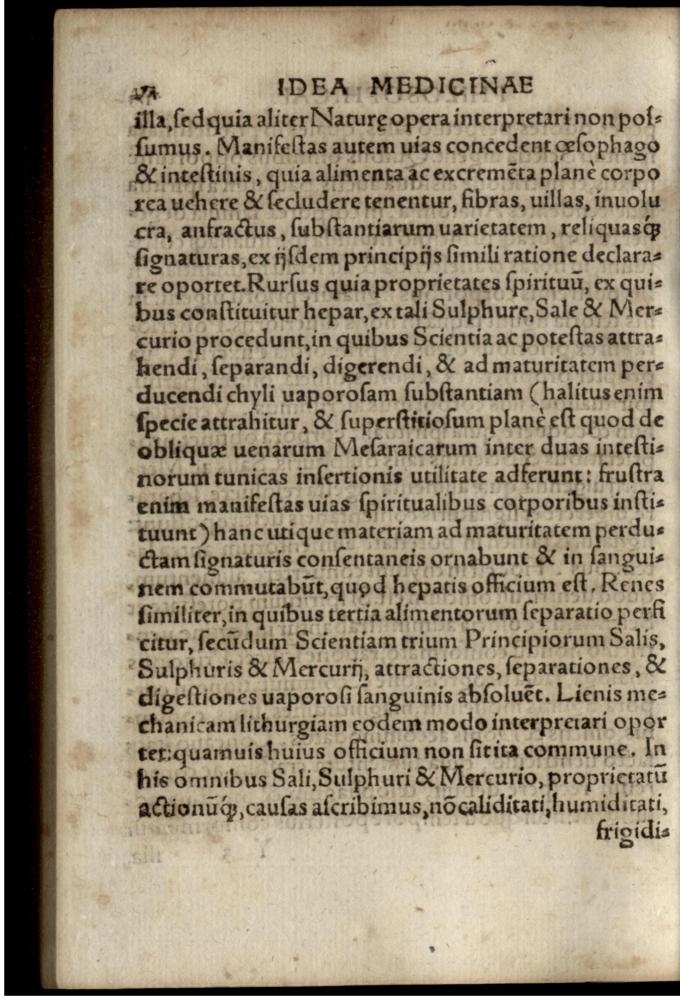 IDEA MEDICINAE
illa, ſed quia aliter Naturę opera interpretari non poſ⸗
ſumus. Manifeſtas autem uias concedent œſophago
& inteſtinis, quia alimenta ac excremẽta planè corpo
rea uehere & ſecludere tenentur, fibras, uillas, inuolu
cra, anfractus, ſubſtantiarum uarietatem, reliquasqꝫ
ſignaturas, ex ijſdem principijs ſimili ratione declara⸗
re oportet. Rurſus quia proprietates ſpirituũ, ex qui⸗
bus conſtituitur hepar, ex tali Sulphure, Sale & Mer⸗
curio procedunt, in quibus Scientia ac poteſtas attra⸗
hendi, ſeparandi, digerendi, & ad maturitatem per⸗
ducendi chyli uaporoſam ſubſtantiam (halitus enim
ſpecie attrahitur, & ſuperſtitioſum planè eſt quod de
obliquæ uenarum Meſaraicarum inter duas inteſti⸗
norum tunicas inſertionis utilitate adferunt: fruſtra
enim manifeſtas uias ſpiritualibus corporibus inſti⸗
tuunt) hanc utique materiam ad maturitatem perdu⸗
ctam ſignaturis conſentaneis ornabunt & in ſangui⸗
nem commutabũt, quod hepatis officium eſt. Renes
ſimiliter, in quibus tertia alimentorum ſeparatio perfi
citur, ſecũdum Scientiam trium Principiorum Salis,
Sulphuris & Mercurij, attractiones, ſeparationes, &
digeſtiones uaporoſi ſanguinis abſoluẽt. Lienis me⸗
chanicam lithurgiam eodem modo interpretari opor
tet: quamuis huius officium non ſit ita commune. In
his omnibus Sali, Sulphuri & Mercurio, proprietatũ
actionũqꝫ, cauſas aſcribimus, nõ caliditati, humiditati,
frigidi⸗